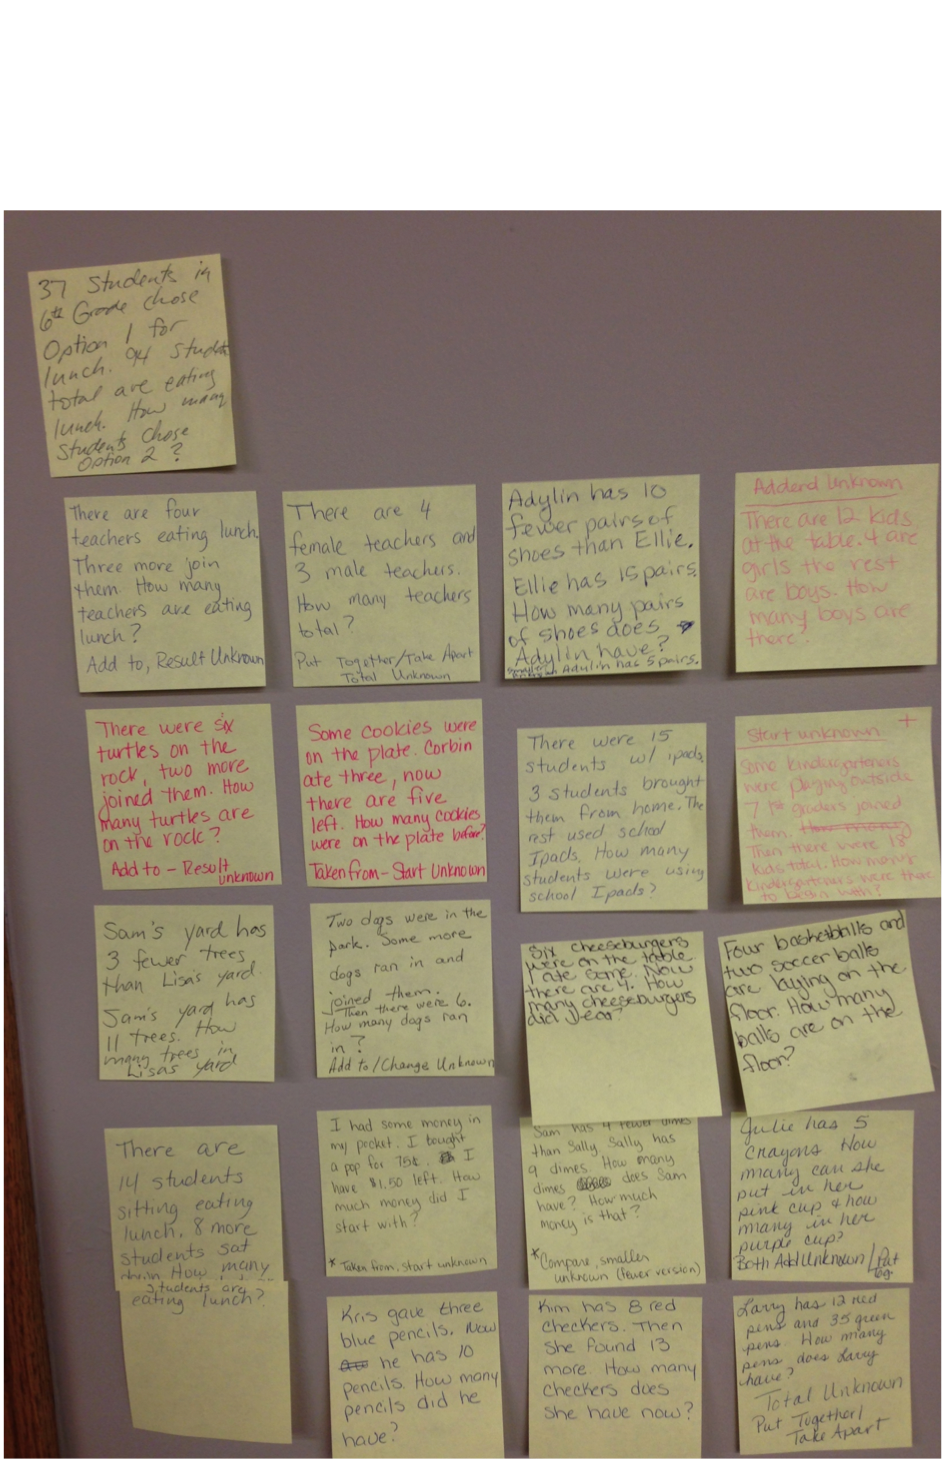 37 Students in
6th Grade chose
Option 1 for
lunch. 94 Studen
total are eating
lunch. How many
Students Chose
Option 2 ?
There are four
teachers eating lunch.
Three more join
them. How many
teachers are eating
lunch?
Add to, Result Unknown
There are 4
female teachers and
3 male teachers.
How many teachers
total?
Put Together/Take Apart
Total Unknown
Adylin has 10
fewer pairs of
shoes than Ellie.
Ellie has 15 pairs.
How many pairs
of shoes does
Adylin have?
Adylin has 5 pairs.
Addend Unknown
There are 12 kids
at the table. 4 are
girls the rest
are boys. How
many boys are
there?
There were six
turtles on the
rock, two more
joined them. How
many turtles are
on the rock?
Add to - Result
unknown
Some cookies were
on the plate. Corbin
ate three, now
there are five
left. How many cookies
were on the plate before?
Taken from - Start Unknown
There were 15
students w/ ipads.
3 students brought
them from home. The
rest used school
Ipads. How many
students were using
school Ipads?
+
Start unknown
Some kindergarteners
were playing outside
7 1st graders joined
them. How many
Then there were 18
kids total. How many
kindergarteners were there
to begin with?
Sam's yard has
3 fewer trees
than Lisa's yard.
Sam's yard has
11 trees. How
many trees in
Lisa's yard
Two dogs were in the
park. Some more
dogs ran in and
joined them.
Then there were 6.
How many dogs ran
in?
Add to/Change Unknown
Six cheeseburgers
were on the table
I ate some. Now
there are 4. How
many cheeseburgers
did I eat?
Four basketballs and
two soccer balls
are laying on the
floor. How many
balls are on the
floor?
There are
14 students
sitting eating
lunch. 8 more
students sat
down How many
students are
eating lunch?
I had some money in
my pocket. I bought
a pop for 75¢. I
have $1.50 left. How
much money did I
start with?
* Taken from, start unknown
Sam has 4 fewer dimes
than Sally. Sally has
9 dimes. How many
dimes does Sam
have? How much
money is that?
* Compare, smaller
unknown (fewer version)
Julie has 5
crayons How
many can she
put in her
pink cup & how
many in her
purple cup?
Both Add Unknown / Put
Tog.
Kris gave three
blue pencils. Now
he has 10
pencils. How many
pencils did he
have?
Kim has 8 red
checkers. Then
she found 13
more. How many
checkers does
she have now?
Larry has 12 red
pens and 35 green
pens. How many
pens does Larry
have?
Total Unknown
Put Together/
Take Apart